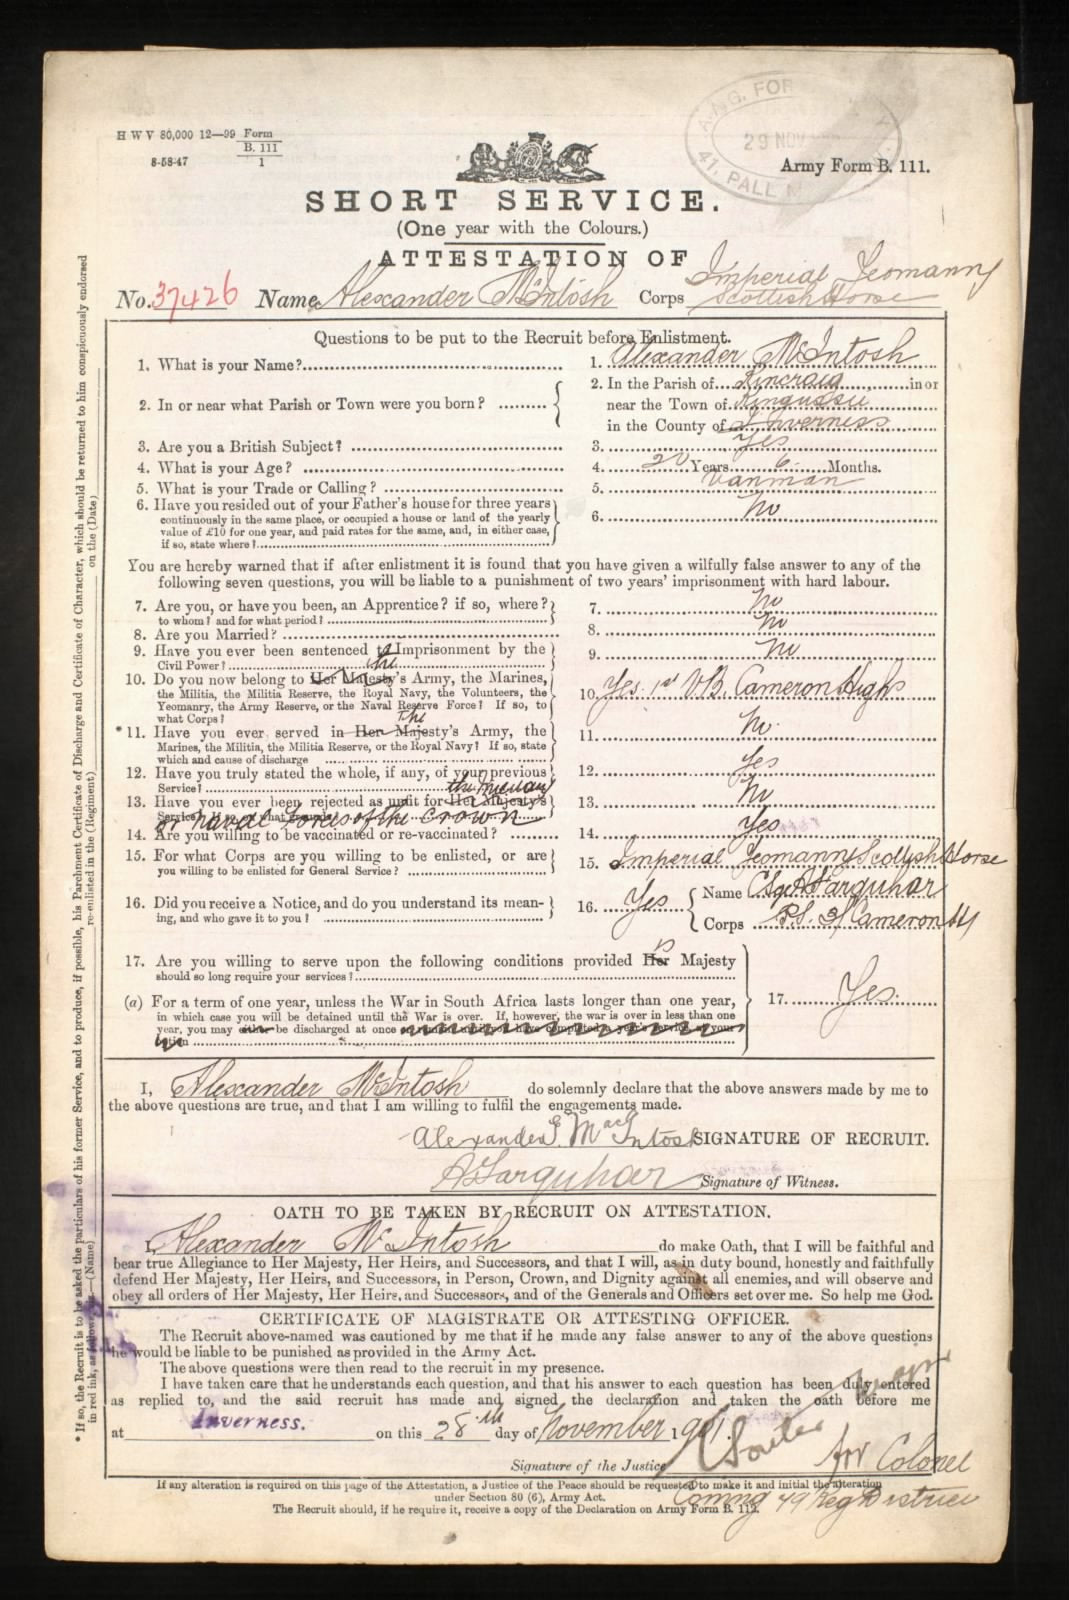 H W V 80,000 12—99 Form
B. 111
1
8-58-47
29 NOV
41, PALL M
Army Form B. 111.
SHORT SERVICE.
(One year with the Colours.)
ATTESTATION OF
No. 37426 Name Alexander McIntosh Corps Imperial Yeomanry
Scottish Horse
Questions to be put to the Recruit before Enlistment.
1. What is your Name? 1. Alexander McIntosh
2. In or near what Parish or Town were you born? 2. In the Parish of Kincraig in or
near the Town of Kingussie
in the County of Inverness
3. Are you a British Subject? 3. Yes
4. What is your Age? 4. 20 Years 6 Months.
5. What is your Trade or Calling? 5. Vanman
6. Have you resided out of your Father's house for three years 6. No
continuously in the same place, or occupied a house or land of the yearly
value of £10 for one year, and paid rates for the same, and, in either case,
if so, state where?
You are hereby warned that if after enlistment it is found that you have given a wilfully false answer to any of the
following seven questions, you will be liable to a punishment of two years' imprisonment with hard labour.
7. Are you, or have you been, an Apprentice? if so, where? 7. No
to whom? and for what period?
8. Are you Married? 8. No
9. Have you ever been sentenced to Imprisonment by the 9. No
Civil Power?
the
10. Do you now belong to Her Majesty's Army, the Marines, 10. Yes. 1st V.B. Cameron Highs
the Militia, the Militia Reserve, the Royal Navy, the Volunteers, the
Yeomanry, the Army Reserve, or the Naval Reserve Force? If so, to
what Corps?
the
* 11. Have you ever served in Her Majesty's Army, the 11. No.
Marines, the Militia, the Militia Reserve, or the Royal Navy? If so, state
which and cause of discharge
12. Have you truly stated the whole, if any, of your previous 12. Yes
Service?
the Military
13. Have you ever been rejected as unfit for Her Majesty's 13. No
Service? If so, on what grounds?
or naval forces of the crown
14. Are you willing to be vaccinated or re-vaccinated? 14. Yes
15. For what Corps are you willing to be enlisted, or are 15. Imperial Yeomanry Scottish Horse
you willing to be enlisted for General Service?
16. Did you receive a Notice, and do you understand its mean- 16. Yes Name C Sgt A Farquhar
ing, and who gave it to you? Corps P.S. 3/ Cameron H
is
17. Are you willing to serve upon the following conditions provided Her Majesty
should so long require your services?
17. Yes.
(a) For a term of one year, unless the War in South Africa lasts longer than one year,
in which case you will be detained until the War is over. If, however, the war is over in less than one
year, you may either be discharged at once or remain until you have completed a year's service at your
option
I, Alexander McIntosh do solemnly declare that the above answers made by me to
the above questions are true, and that I am willing to fulfil the engagements made.
Alexander MacIntosh SIGNATURE OF RECRUIT.
A Farquhar Signature of Witness.
OATH TO BE TAKEN BY RECRUIT ON ATTESTATION.
I, Alexander McIntosh do make Oath, that I will be faithful and
bear true Allegiance to Her Majesty, Her Heirs, and Successors, and that I will, as in duty bound, honestly and faithfully
defend Her Majesty, Her Heirs, and Successors, in Person, Crown, and Dignity against all enemies, and will observe and
obey all orders of Her Majesty, Her Heirs, and Successors, and of the Generals and Officers set over me. So help me God.
CERTIFICATE OF MAGISTRATE OR ATTESTING OFFICER.
The Recruit above-named was cautioned by me that if he made any false answer to any of the above questions
he would be liable to be punished as provided in the Army Act.
The above questions were then read to the recruit in my presence.
I have taken care that he understands each question, and that his answer to each question has been duly entered
as replied to, and the said recruit has made and signed the declaration and taken the oath before me
at Inverness. on this 28th day of November 1901.
Signature of the Justice
for Colonel
Comng 79 Reg District
If any alteration is required on this page of the Attestation, a Justice of the Peace should be requested to make it and initial the alteration
under Section 80 (6), Army Act.
The Recruit should, if he require it, receive a copy of the Declaration on Army Form B. 112.
* If so, the Recruit is to be asked the particulars of his former Service, and to produce, if possible, his Parchment Certificate of Discharge and Certificate of Character, which should be returned to him conspicuously endorsed
in red ink, as follows, viz.—(Name) re-enlisted in the (Regiment) on the (Date)